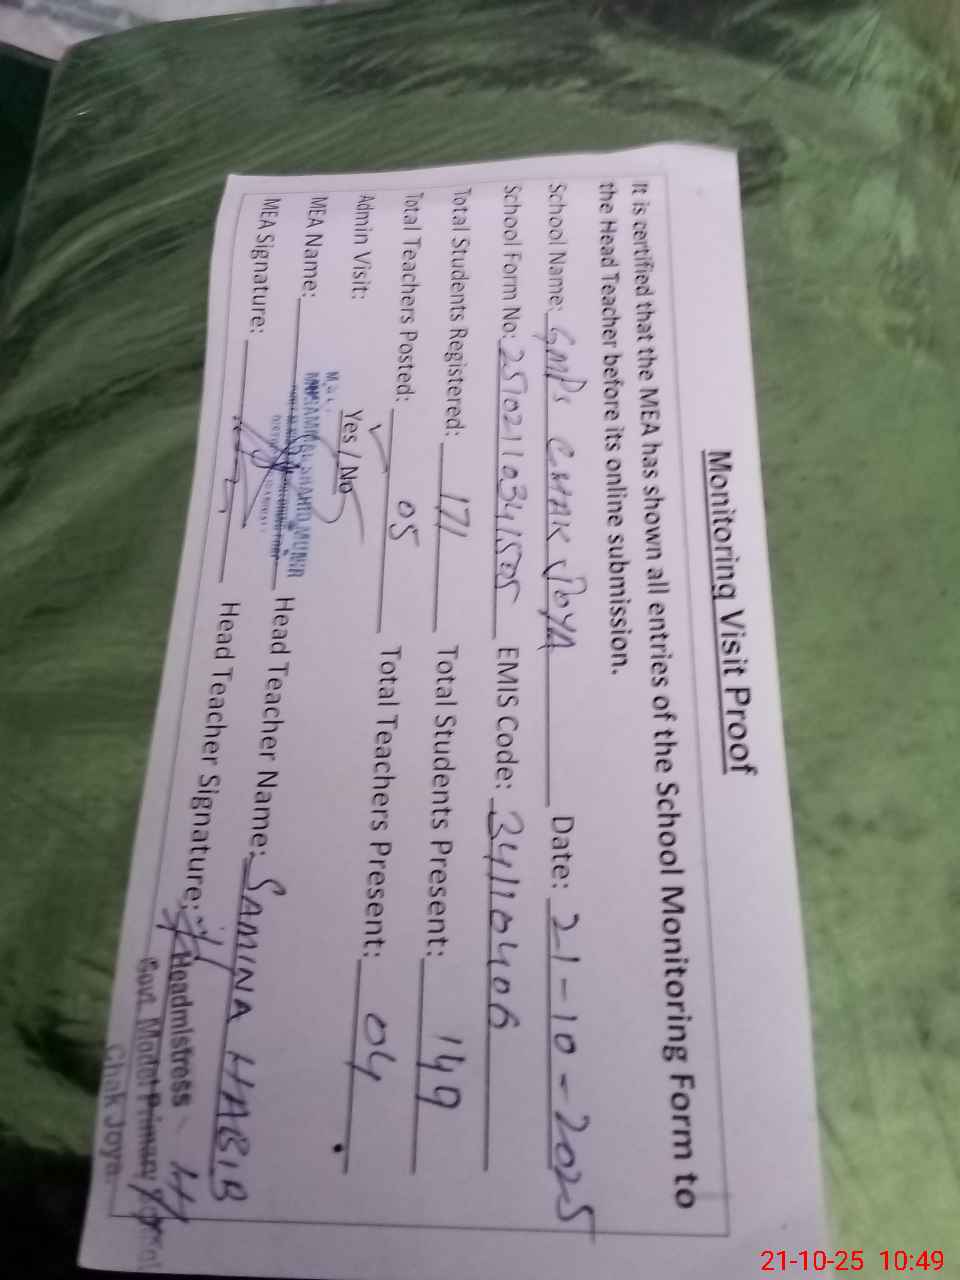 Monitoring Visit Proof
It is certified that the MEA has shown all entries of the School Monitoring Form to
the Head Teacher before its online submission.
School Name: GMPS CHAK JOYA Date: 21-10-2025
School Form No: 25102110341505 EMIS Code: 34110406
Total Students Registered: 171 Total Students Present: 149
Total Teachers Posted: 05 Total Teachers Present: 04
Admin Visit: Yes / No
MEA Name: SHAHID MUNIR Head Teacher Name: SAMINA HABIB
MEA Signature: Head Teacher Signature:
Headmistress
Govt. Model Primary School
Chak Joya
21-10-25 10:49